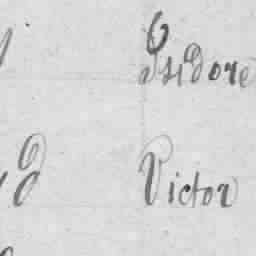 Isidore
Victor